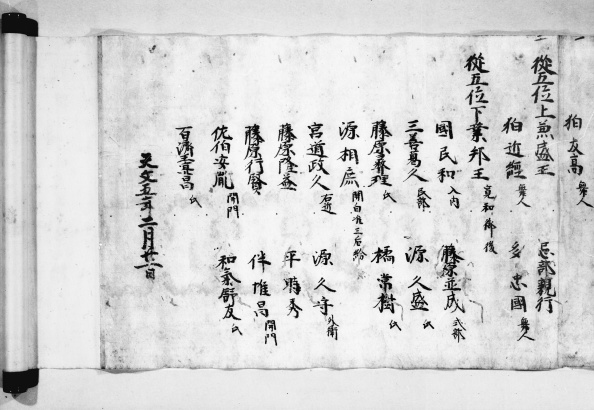 狛友高 舞人
従五位上兼盛王 忌部親行
狛近經 舞人 多忠國 舞人
従五位下業邦王 寛和御後
國民和 入内 藤原並成 式部
三善為久 民部 源久盛 氏
藤原養理 氏 橘常樹 氏
源相庶 関白准三后給
宮道政久 右近 源久守 外衛
藤原隆益 平時秀
藤原行賢 伴惟昌 開門
佐伯安胤 開門 和氣舒友 氏
百濟壹昌 氏
天文五年二月廿二日